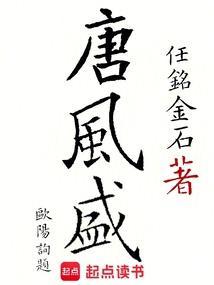 唐風盛
任銘金石著
歐陽詢題
起点 起点读书